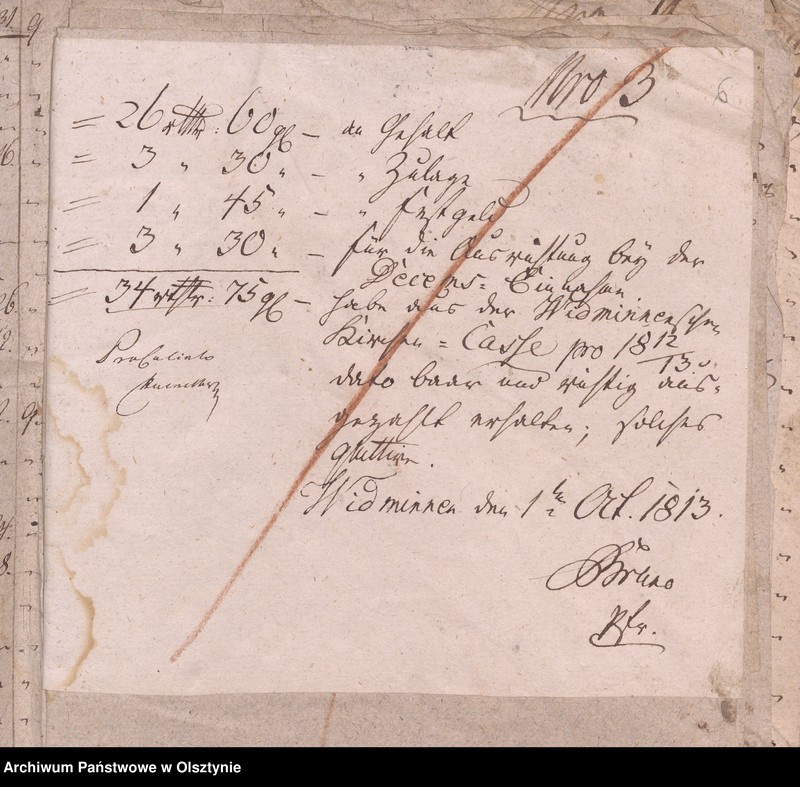 Nro 3
6
= 26 rthlr: 60 gl – an Gehalt
= 3 " 30 " – " Zulage
= 1 " 45 " – " Festgeld
= 3 " 30 " – für die Ausrichtung bey der
Decems-Einnahme
= 34 rthlr: 75 gl – habe aus der Widminnenschen
Kirchen = Casse pro 1812/13
dato baar und richtig aus-
gezahlt erhalten; solches
quittire.
Widminnen den 1t Oct. 1813.
Bruno
Pfr.
Archiwum Państwowe w Olsztynie